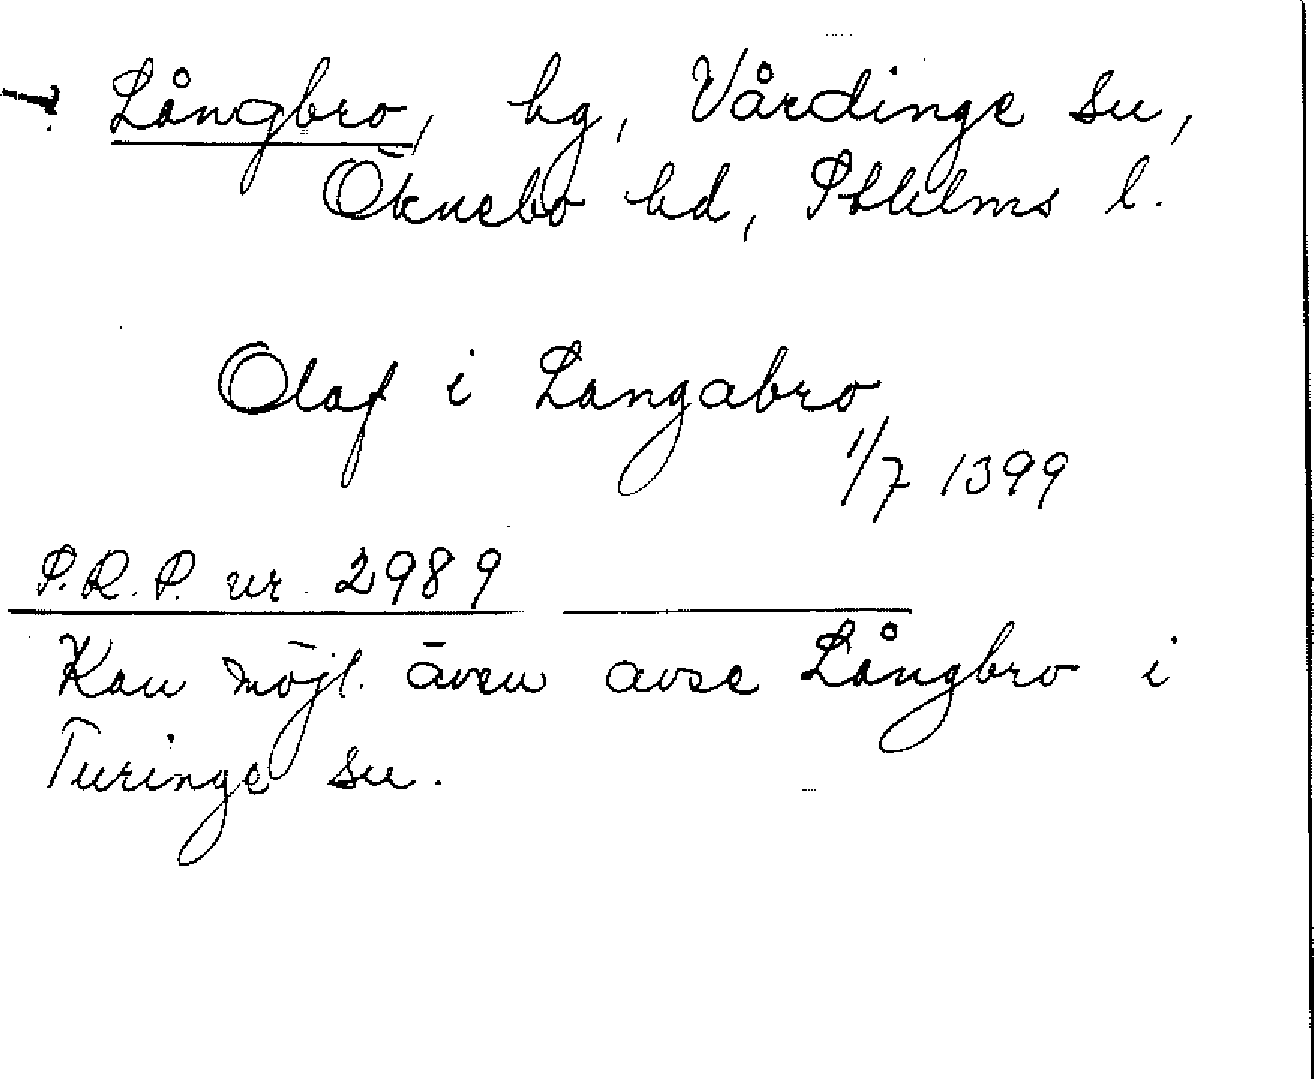 Långbro, hg, Vårdinge sn,
Öknebo hd, Sthlms l.
Olaf i Langabro
1/7 1399
P.R.P. nr. 2989
Kan möjl. även avse Långbro i
Turinge sn.